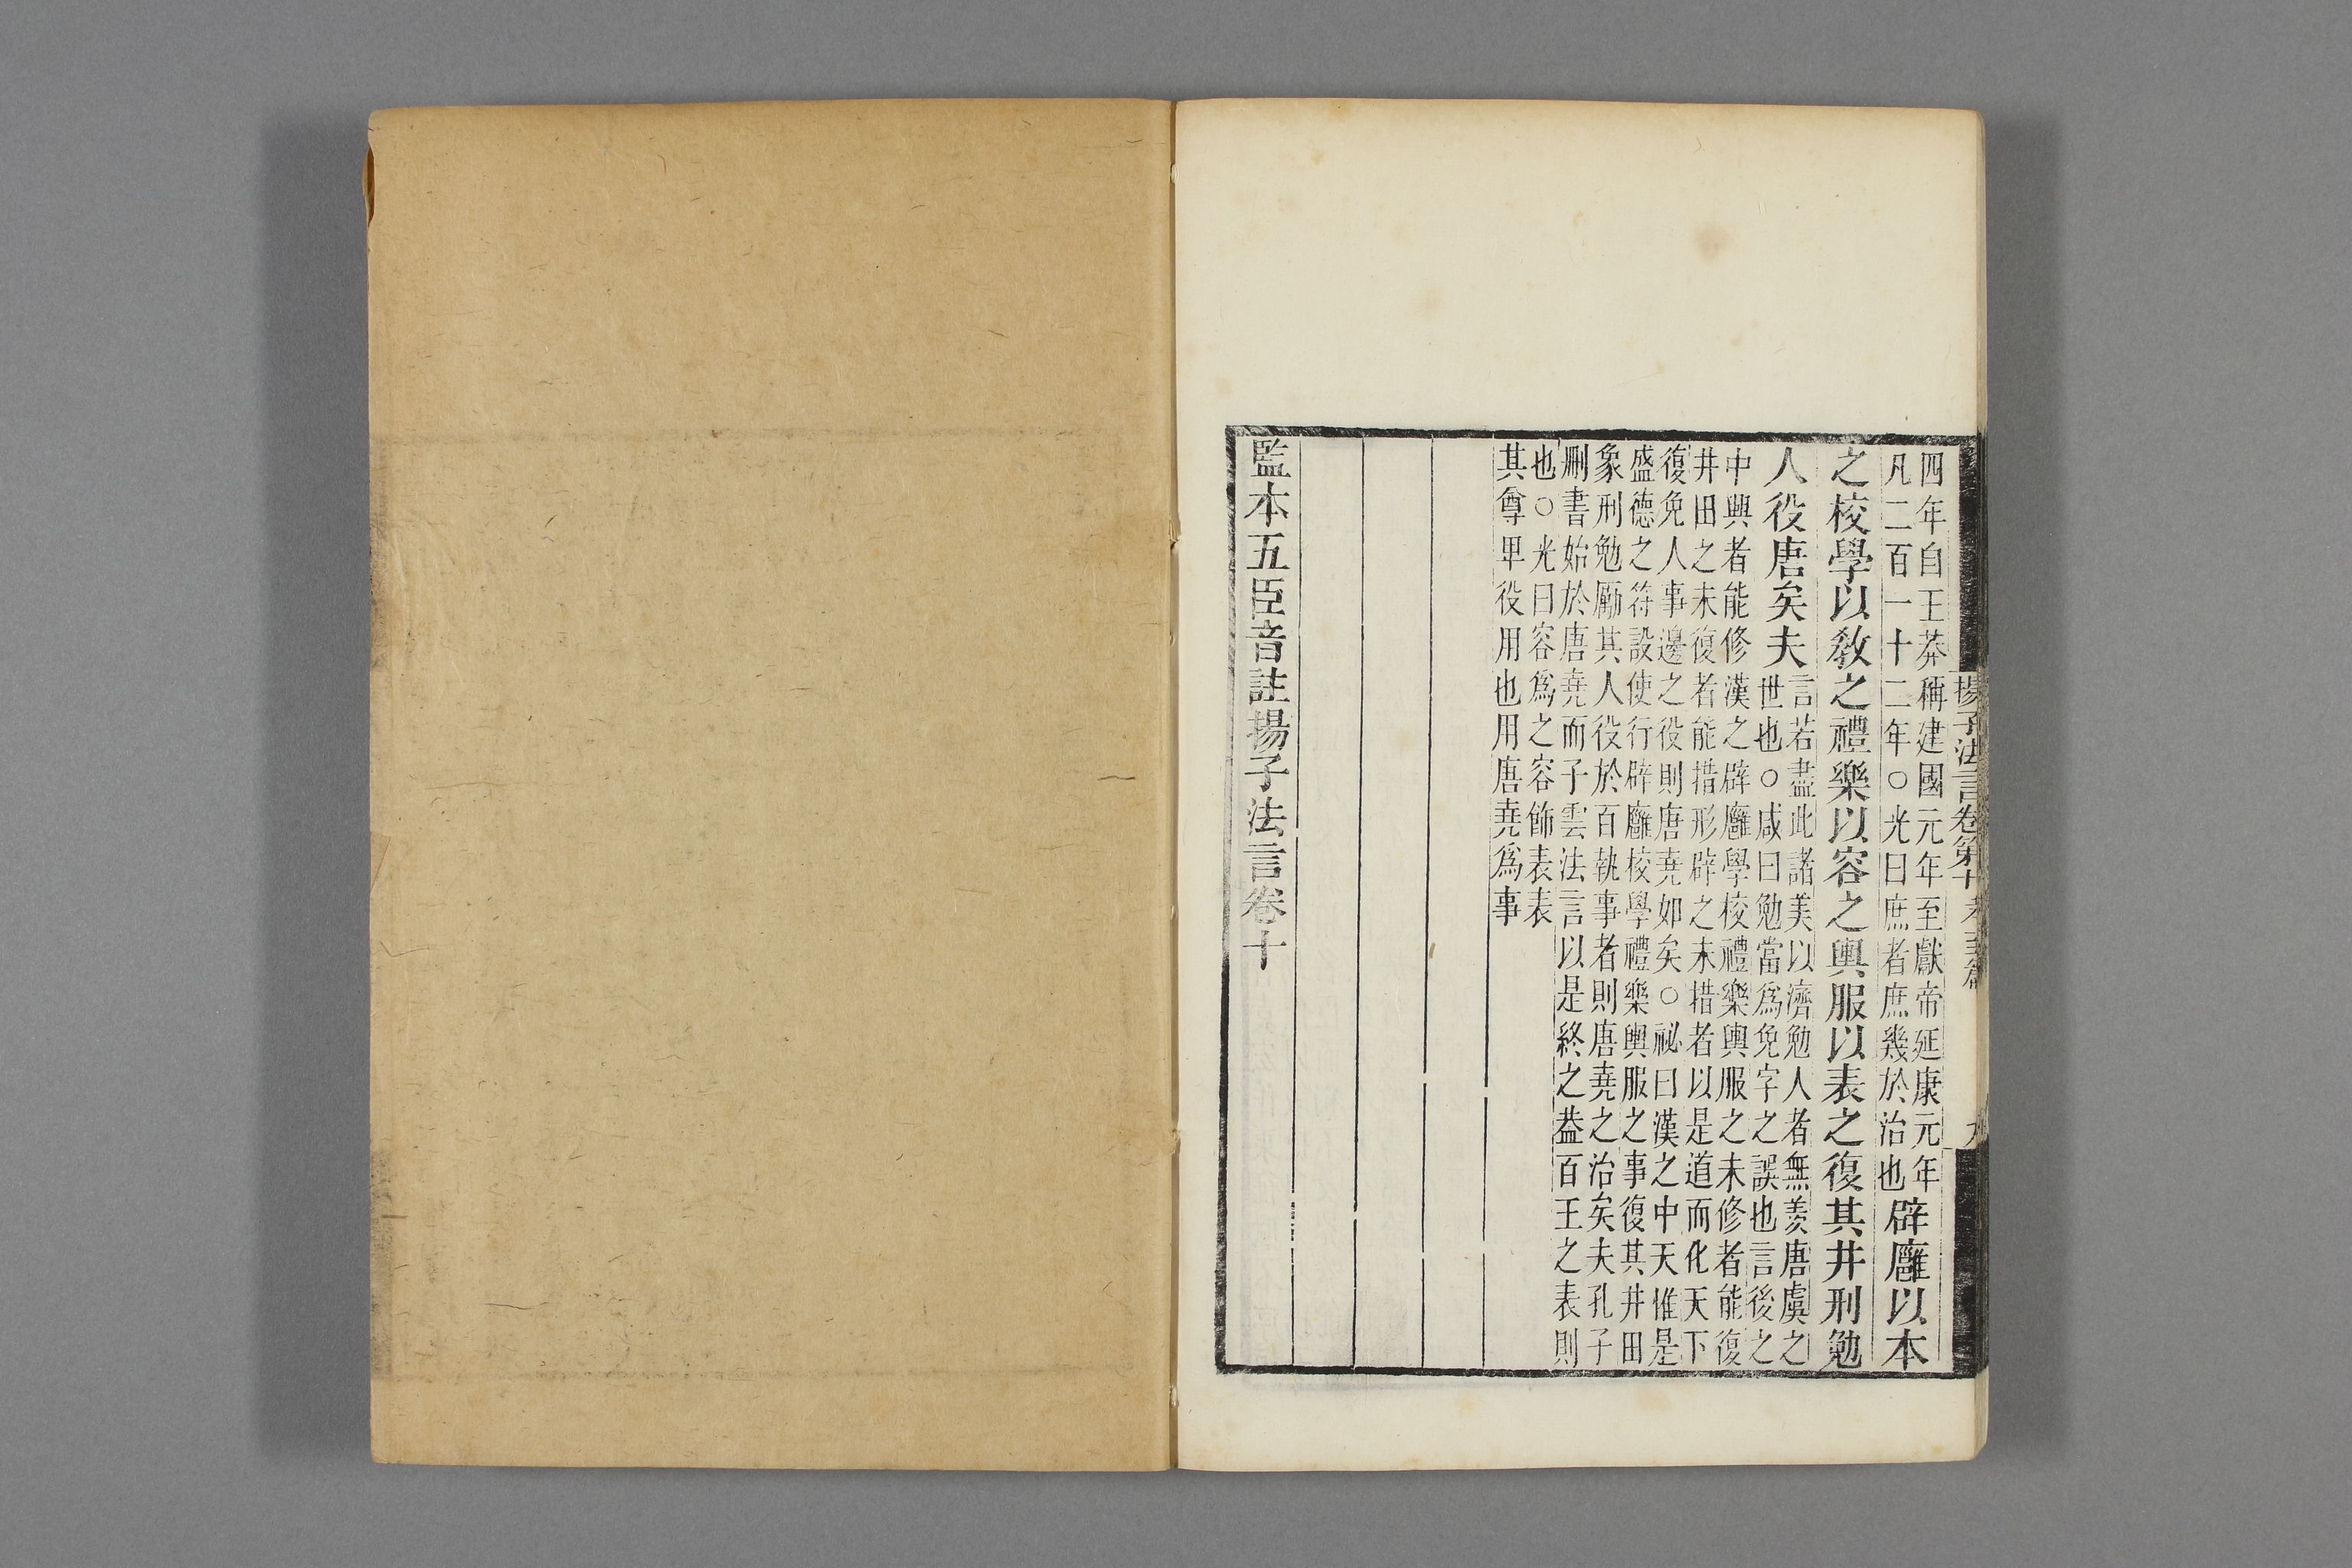 揚子法言卷第十
九
四年自王莽稱建國元年至獻帝延康元年
凡二百一十二年○光曰庶者庶幾於治也
辟廱以本
之校學以敎之禮樂以容之輿服以表之復其井刑勉
人役唐矣夫
言若盡此諸美以濟勉人者無羨唐虞之
世也○咸曰勉當爲免字之誤也言後之
中興者能修漢之辟廱學校禮樂輿服之未修者能復
井田之未復者能措形辟之未措者以是道而化天下
復免人事邊之役則唐堯如矣○祕曰漢之中天惟是
盛德之符設使行辟廱校學禮樂輿服之事復其井田
象刑勉厲其人役於百執事者則唐堯之治矣夫孔子
刪書始於唐堯而子雲法言以是終之葢百王之表則
也○光曰容爲之容飾表表
其尊卑役用也用唐堯爲事
監本五臣音註揚子法言卷十